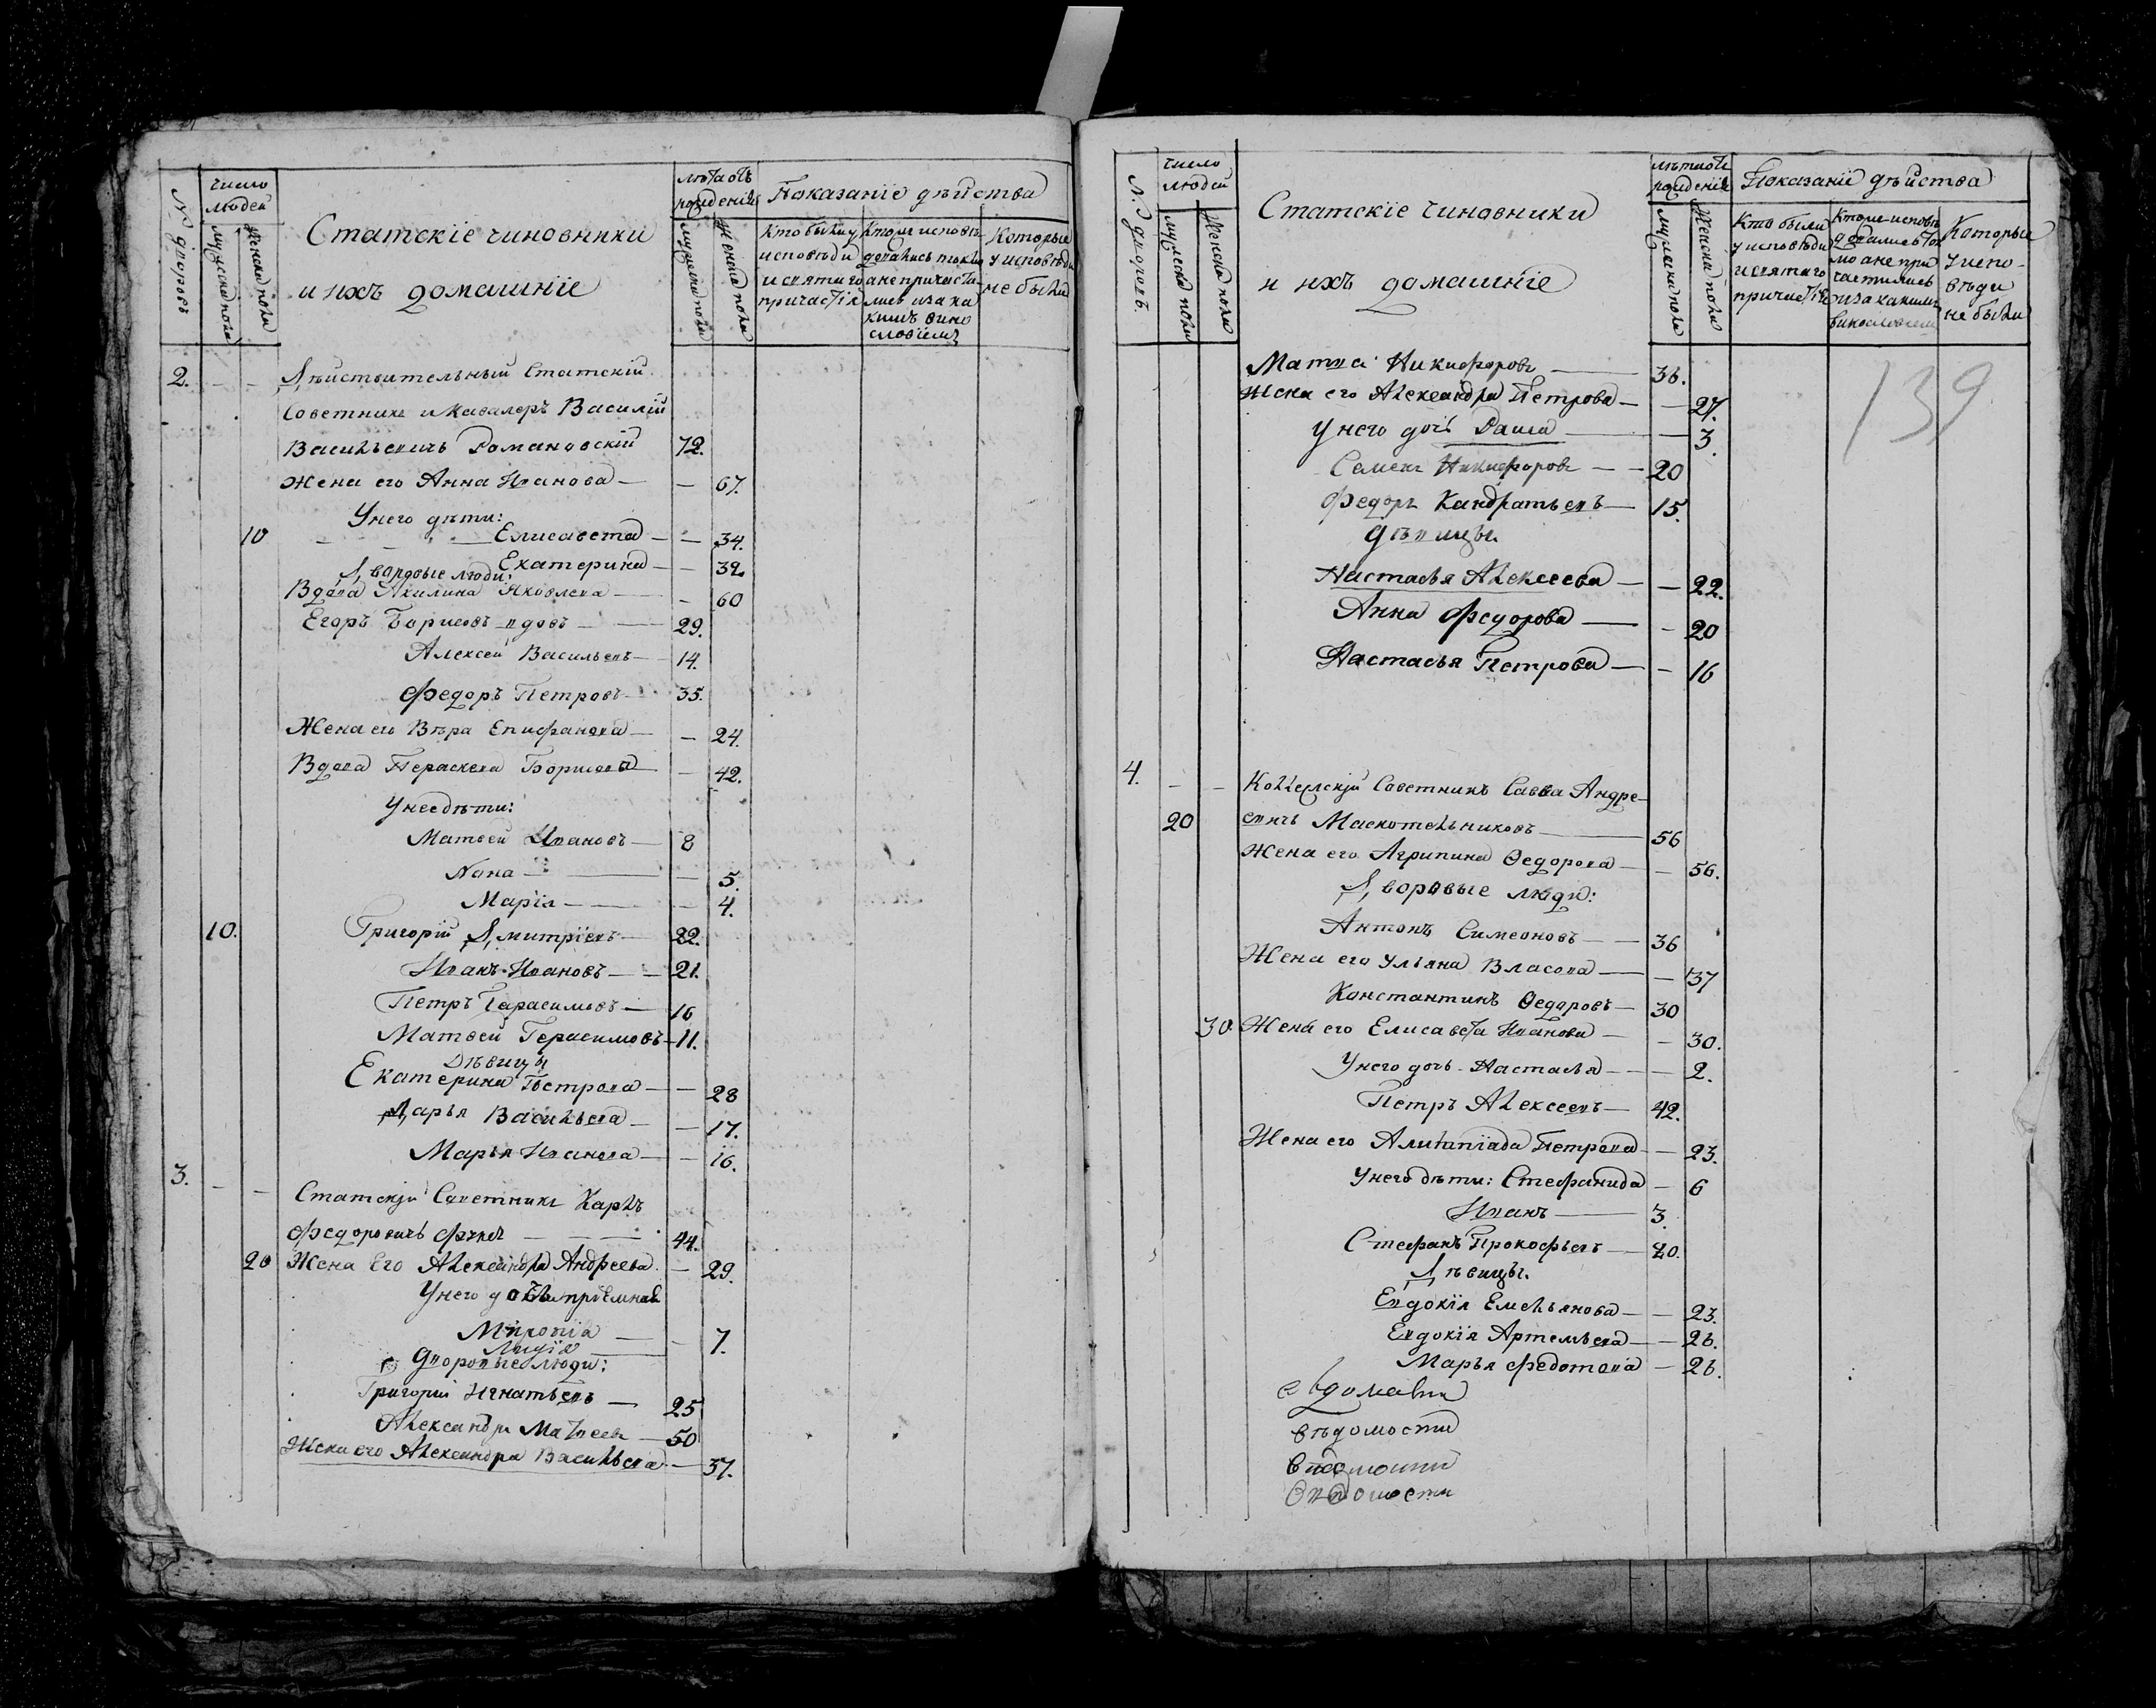 № дворовъ
число людей
мужеска пола
женска пола
Статскіе чиновники
и ихъ домашніе
лѣта отъ рожденія
мужеска пола
женска пола
Показаніе дѣйства
Кто были у
исповѣди
и святаго
причастія
Кто исповѣ-
дались токмо
а не причасти-
лись и за ка
кимъ вино
словіемъ
Которые
у исповѣди
не были
2. Дѣйствительный Статскій
Советникъ и Кавалеръ Василій
Васильевичъ Романовскій 72.
Жена его Анна Иванова — — 67.
У него дѣти:
10 Елисавета — — 34.
Екатерина — — 32
Дворовые люди:
Вдова Акилина Яковлева — - 60
Егоръ Борисовъ вдовъ — 29.
Алексей Васильевъ — 14.
Федоръ Петровъ — 35.
Жена его Вѣра Епифанова — — 24.
Вдова Пераскева Борисова — 42.
У нее дѣти:
Матвей Ивановъ — 8
Анна — — 5.
Марія — — 4.
10. Григорій Дмитріевъ — 22.
Иванъ Ивановъ — 21.
Петръ Герасимовъ — 16
Матвей Герасимовъ — 11.
Дѣвицы
Екатерина Петрова — — 28
Дарья Васильева — — 17.
Марья Иванова — — 16.
3. Статскій Советникъ Карлъ
Федоровичъ 44.
20 Жена Его Александра Андреева — 29.
У него дочь пріемная
— 7.
Лидія
Дворовые люди:
Григорій Игнатьевъ — 25
Александръ Матвеевъ — 50
Жена его Александра Васильева — 37.
№ дворовъ.
число людей
мужеска пола
женска пола
Статскіе чиновники
и ихъ домашніе
лѣта отъ рожденія
мужеска пола
женска пола
Показаніе дѣйства
Кто были
у исповѣди
и святаго
причастія
Кто исповѣ
дались ток
мо а не при
частились
и за какимъ
винословіем
Которые
у испо-
вѣди
не были
139
Никифоровъ — 36.
Жена его Александра Петрова — — 27.
У него дочь — 3.
Семенъ Никифоровъ — — 20
Федоръ Кандратьевъ — 15.
Дѣвицы.
Настасья Алексеева — — 22.
Анна Федорова — - 20
Настасья Петрова — - 16
4. Коллежскій Советникъ Савва Андре-
20 евичъ Маскотельниковъ — 56
Жена его Агрипина Ѳедорова — — 56.
Дворовые люди:
Антонъ Симеоновъ — — 36
Жена его Ульяна Власова — — 37
Константинъ Ѳедоровъ — 30
30 Жена его Елисавета Иванова — — 30.
У него дочь Настасья — — 2.
Петръ Алексеевъ — 42.
Жена его Алимпіада Петрова — — 23.
У него дѣти: Стефанида — 6
Иванъ — 3.
Стефанъ Прокофьевъ — 20.
Дѣвицы.
Евдокія Емельянова — — 23.
Евдокія Артемьева — — 26.
Марья Федотова — 26.
вѣдомости